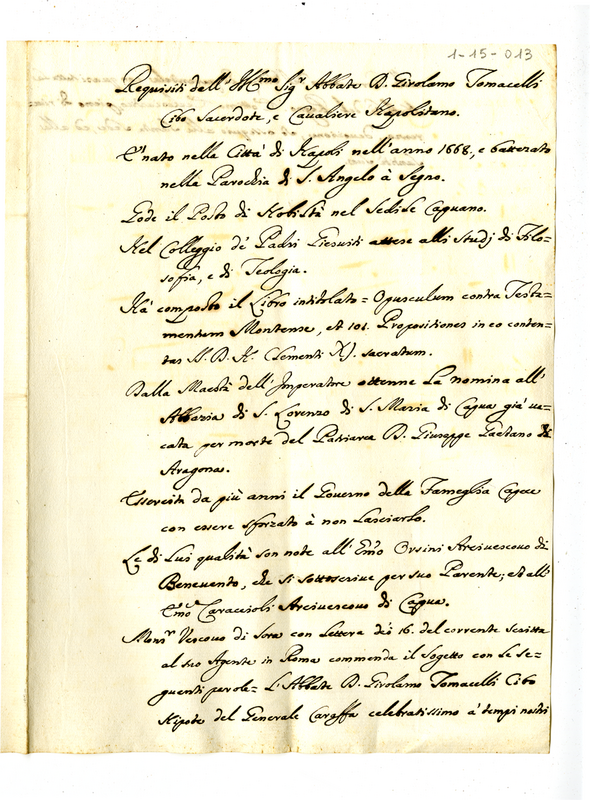 1-15-013
Requisiti dell' Ill.mo Sig.r Abbate D. Girolamo Tomacelli
Cibo Sacerdote, e Cavaliere Napolitano.
E' nato nella Città di Napoli nell' anno 1668, e battezato
nella Parochia di S. Angelo à Segno.
Gode il Posto di Nobiltà nel Sedile Capuano.
Nel Colleggio de' Padri Giesuiti attese alli Studj di Filo=
sofia, e di Teologia.
Hà composto il Libro intitolato= Opusculum contra Testa=
mentum Montense, et 101. Propositiones in eo conten=
tas SS. D. N. Clementi XJ. sacratum.
Dalla Maestà dell' Imperatore ottenne la nomina all'
Abbazia di S. Lorenzo di S. Maria di Capua già va=
cata per morte del Patriarca D. Giuseppe Gaetano de
Aragona.
Essercita da più anni il Governo della Fameglia Capece
con essere sforzato à non lasciarlo.
Le di Lui qualità son note all' Em.o Orsini Arcivescovo di
Benevento, che si sottoscrive per suo Parente; et all'
Em.o Caraccioli Arcivescovo di Capua.
Mons.r Vescovo di Sora con Lettera de' 16. del corrente scritta
al suo Agente in Roma commenda il sogetto con le se=
guenti parole= L'Abbate D. Girolamo Tomacelli Cibo
Nipote del Generale Caraffa celebratissimo a' tempi nostri